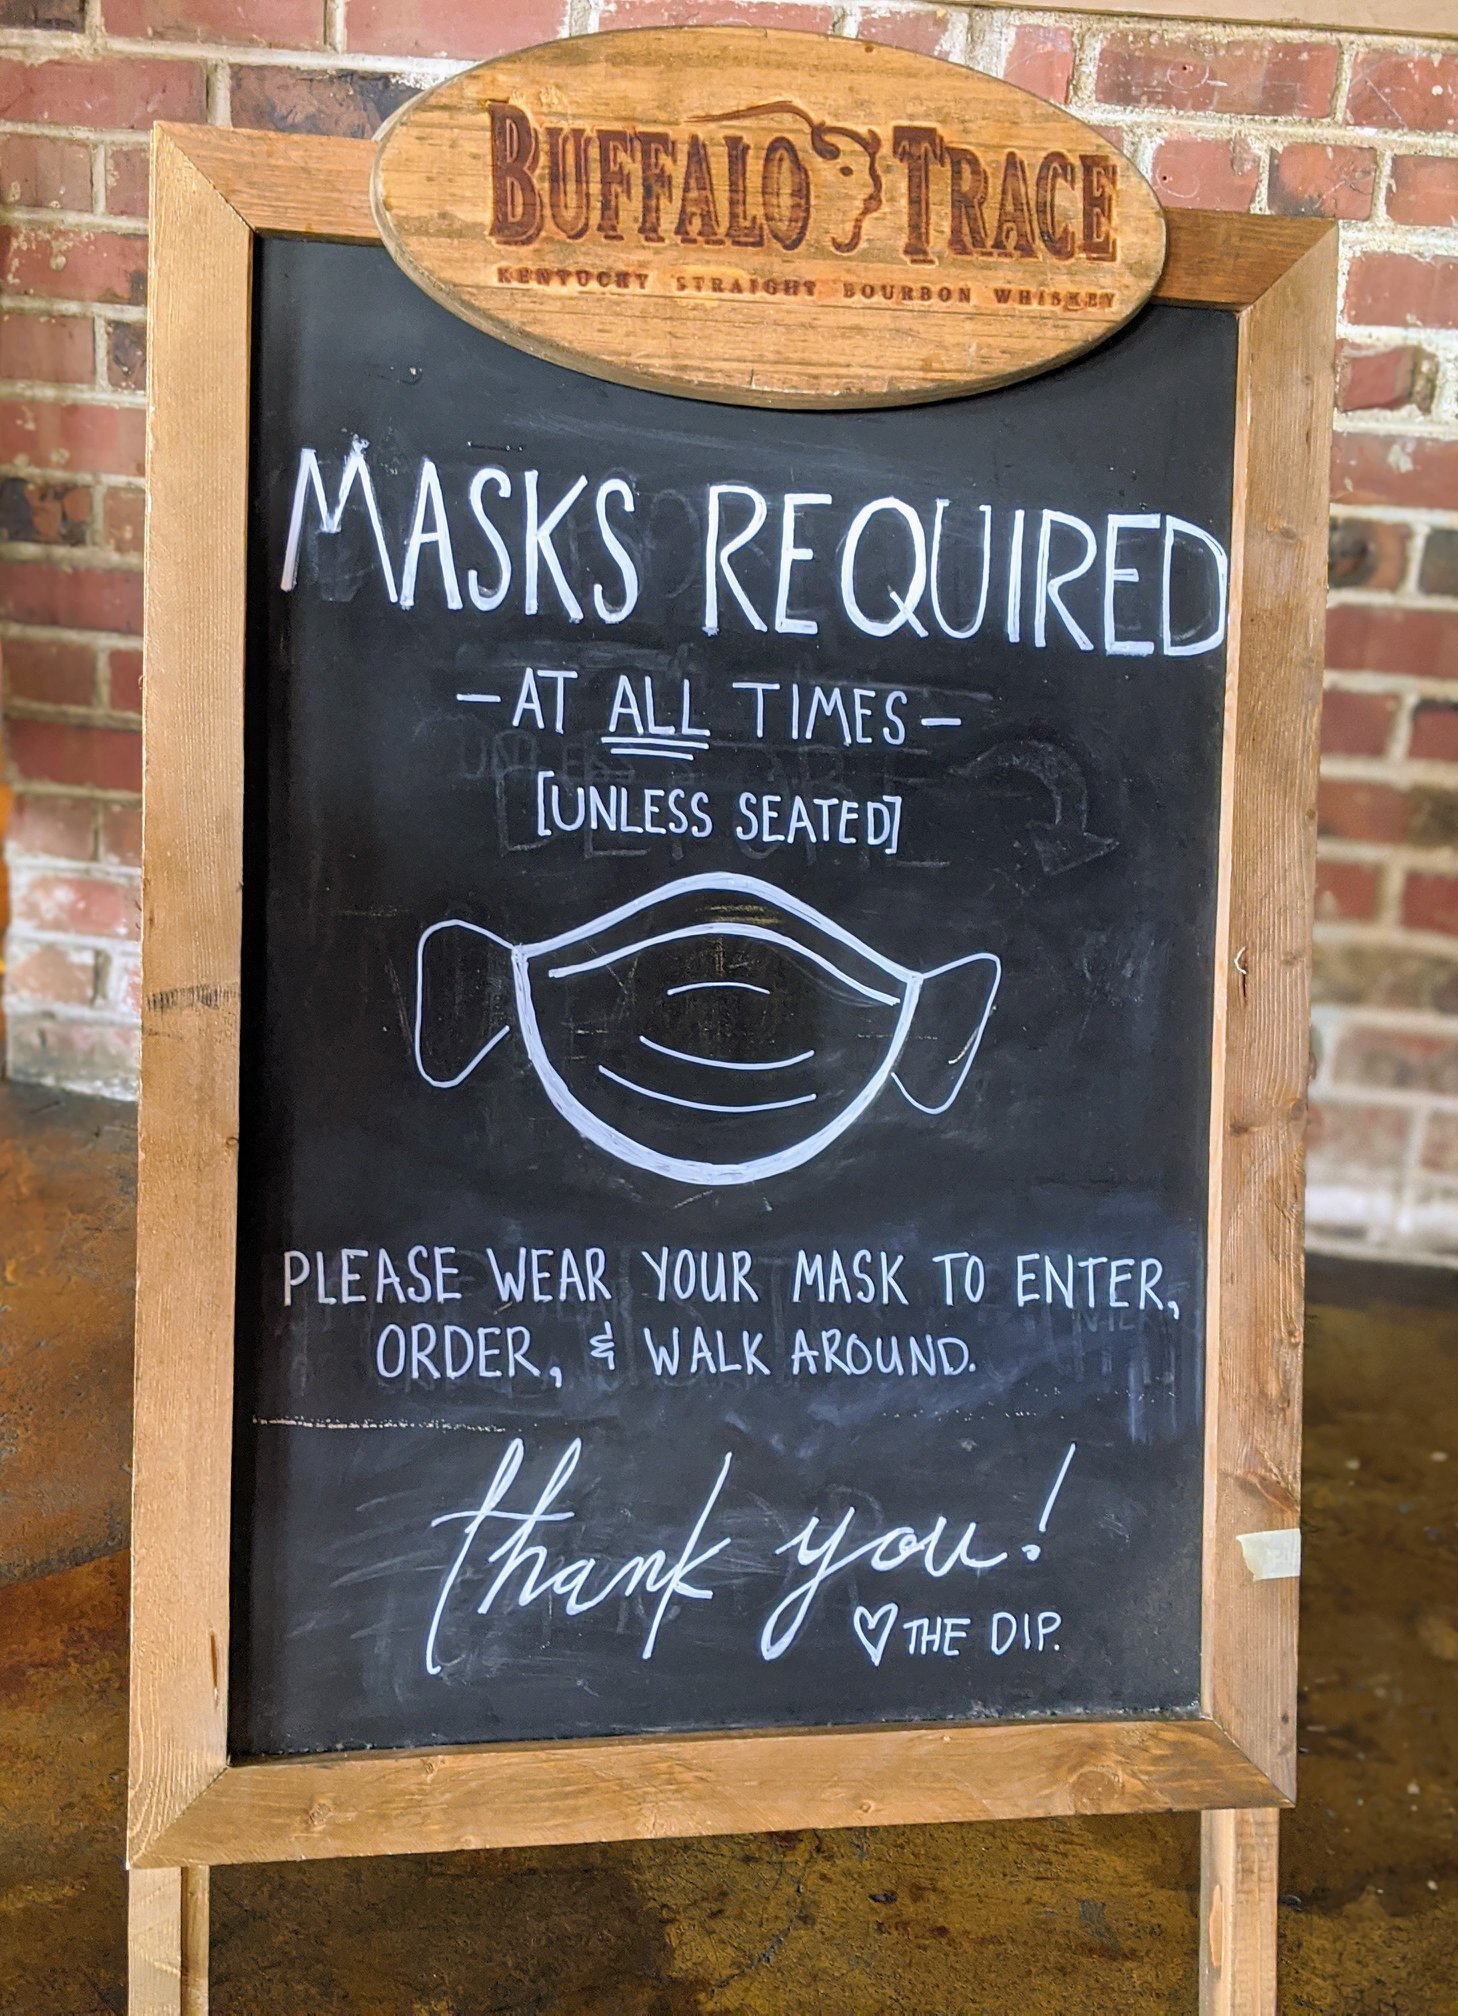 BUFFALO TRACE
KENTUCKY STRAIGHT BOURBON WHISKEY
MASKS REQUIRED
-AT ALL TIMES-
[UNLESS SEATED]
PLEASE WEAR YOUR MASK TO ENTER,
ORDER, & WALK AROUND.
thank you!
♡ THE DIP.